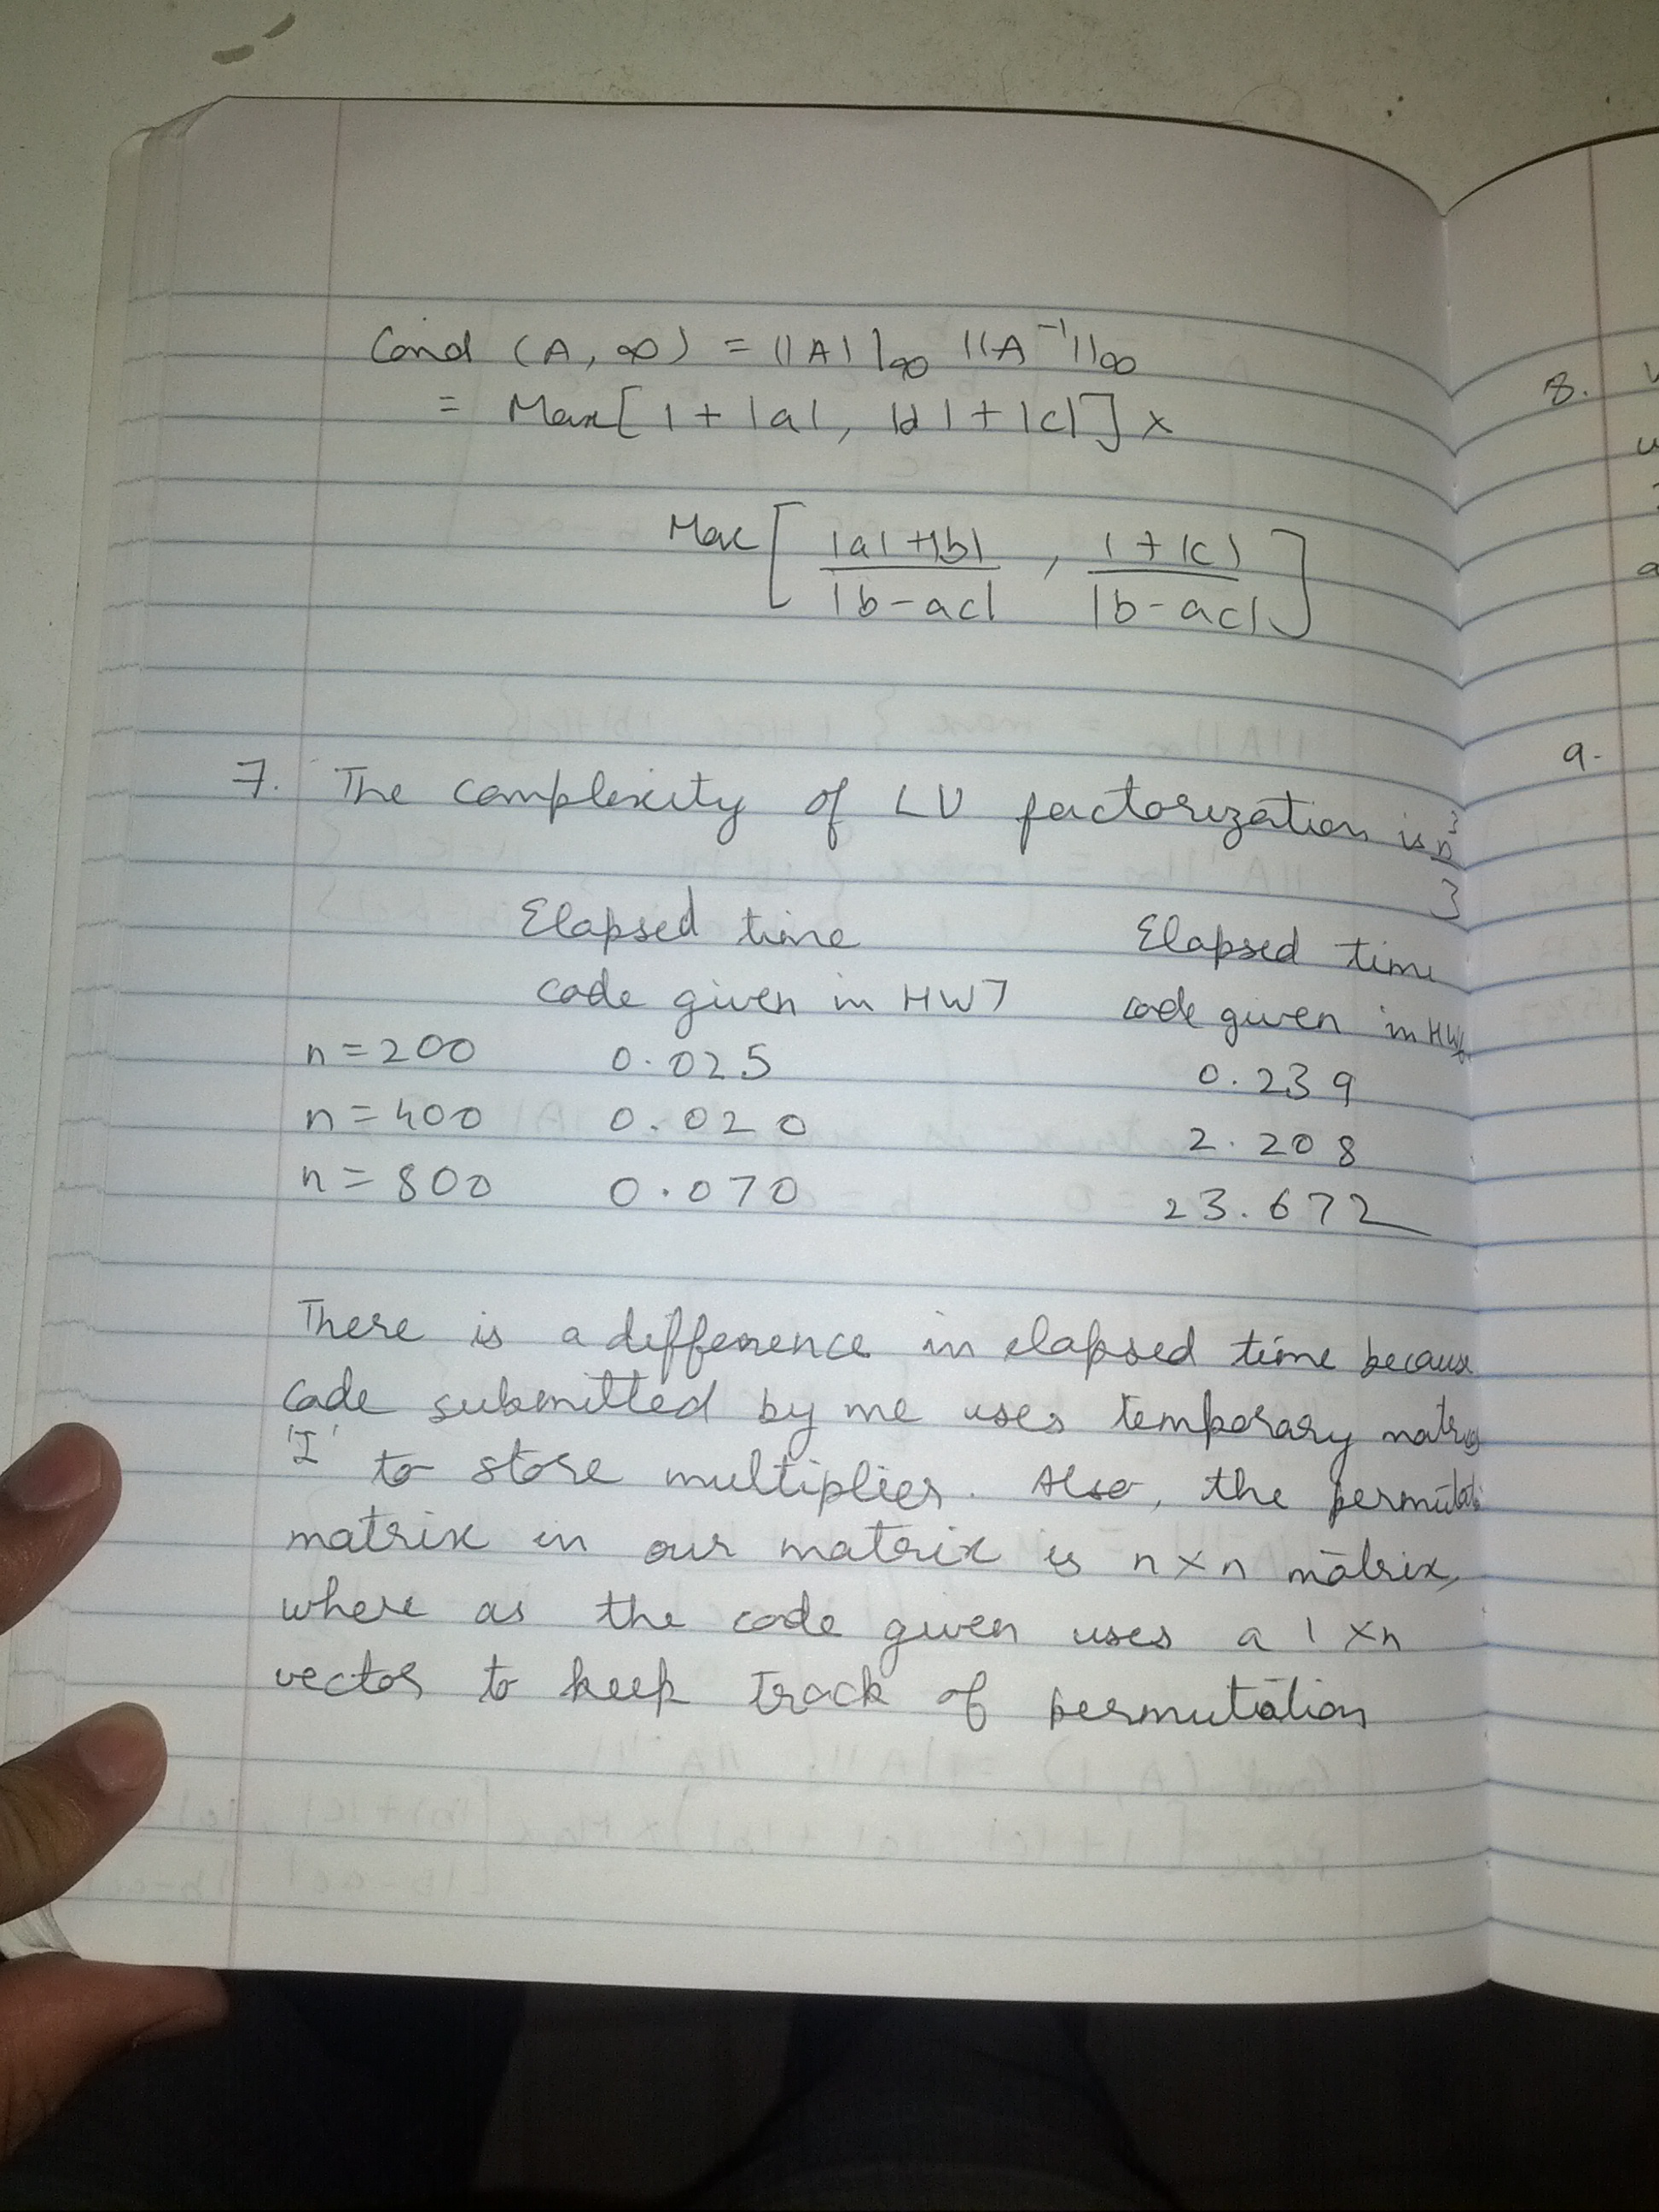 Cond (A, ∞) = ||A||∞ ||A⁻¹||∞
= Max[ 1 + |a|, |b| + |c| ] x
Max [ |a| + |b| / |b - ac| , 1 + |c| / |b - ac| ]
7. The complexity of LU factorization is n³/3
Elapsed time Elapsed time
code given in HW7 code given in HW6
n = 200 0.025 0.239
n = 400 0.020 2.208
n = 800 0.070 23.672
There is a difference in elapsed time because
code submitted by me uses temporary matrix
'I' to store multiplier. Also, the permutation
matrix in our matrix is n x n matrix,
where as the code given uses a 1 x n
vector to keep track of permutation
8.
9.